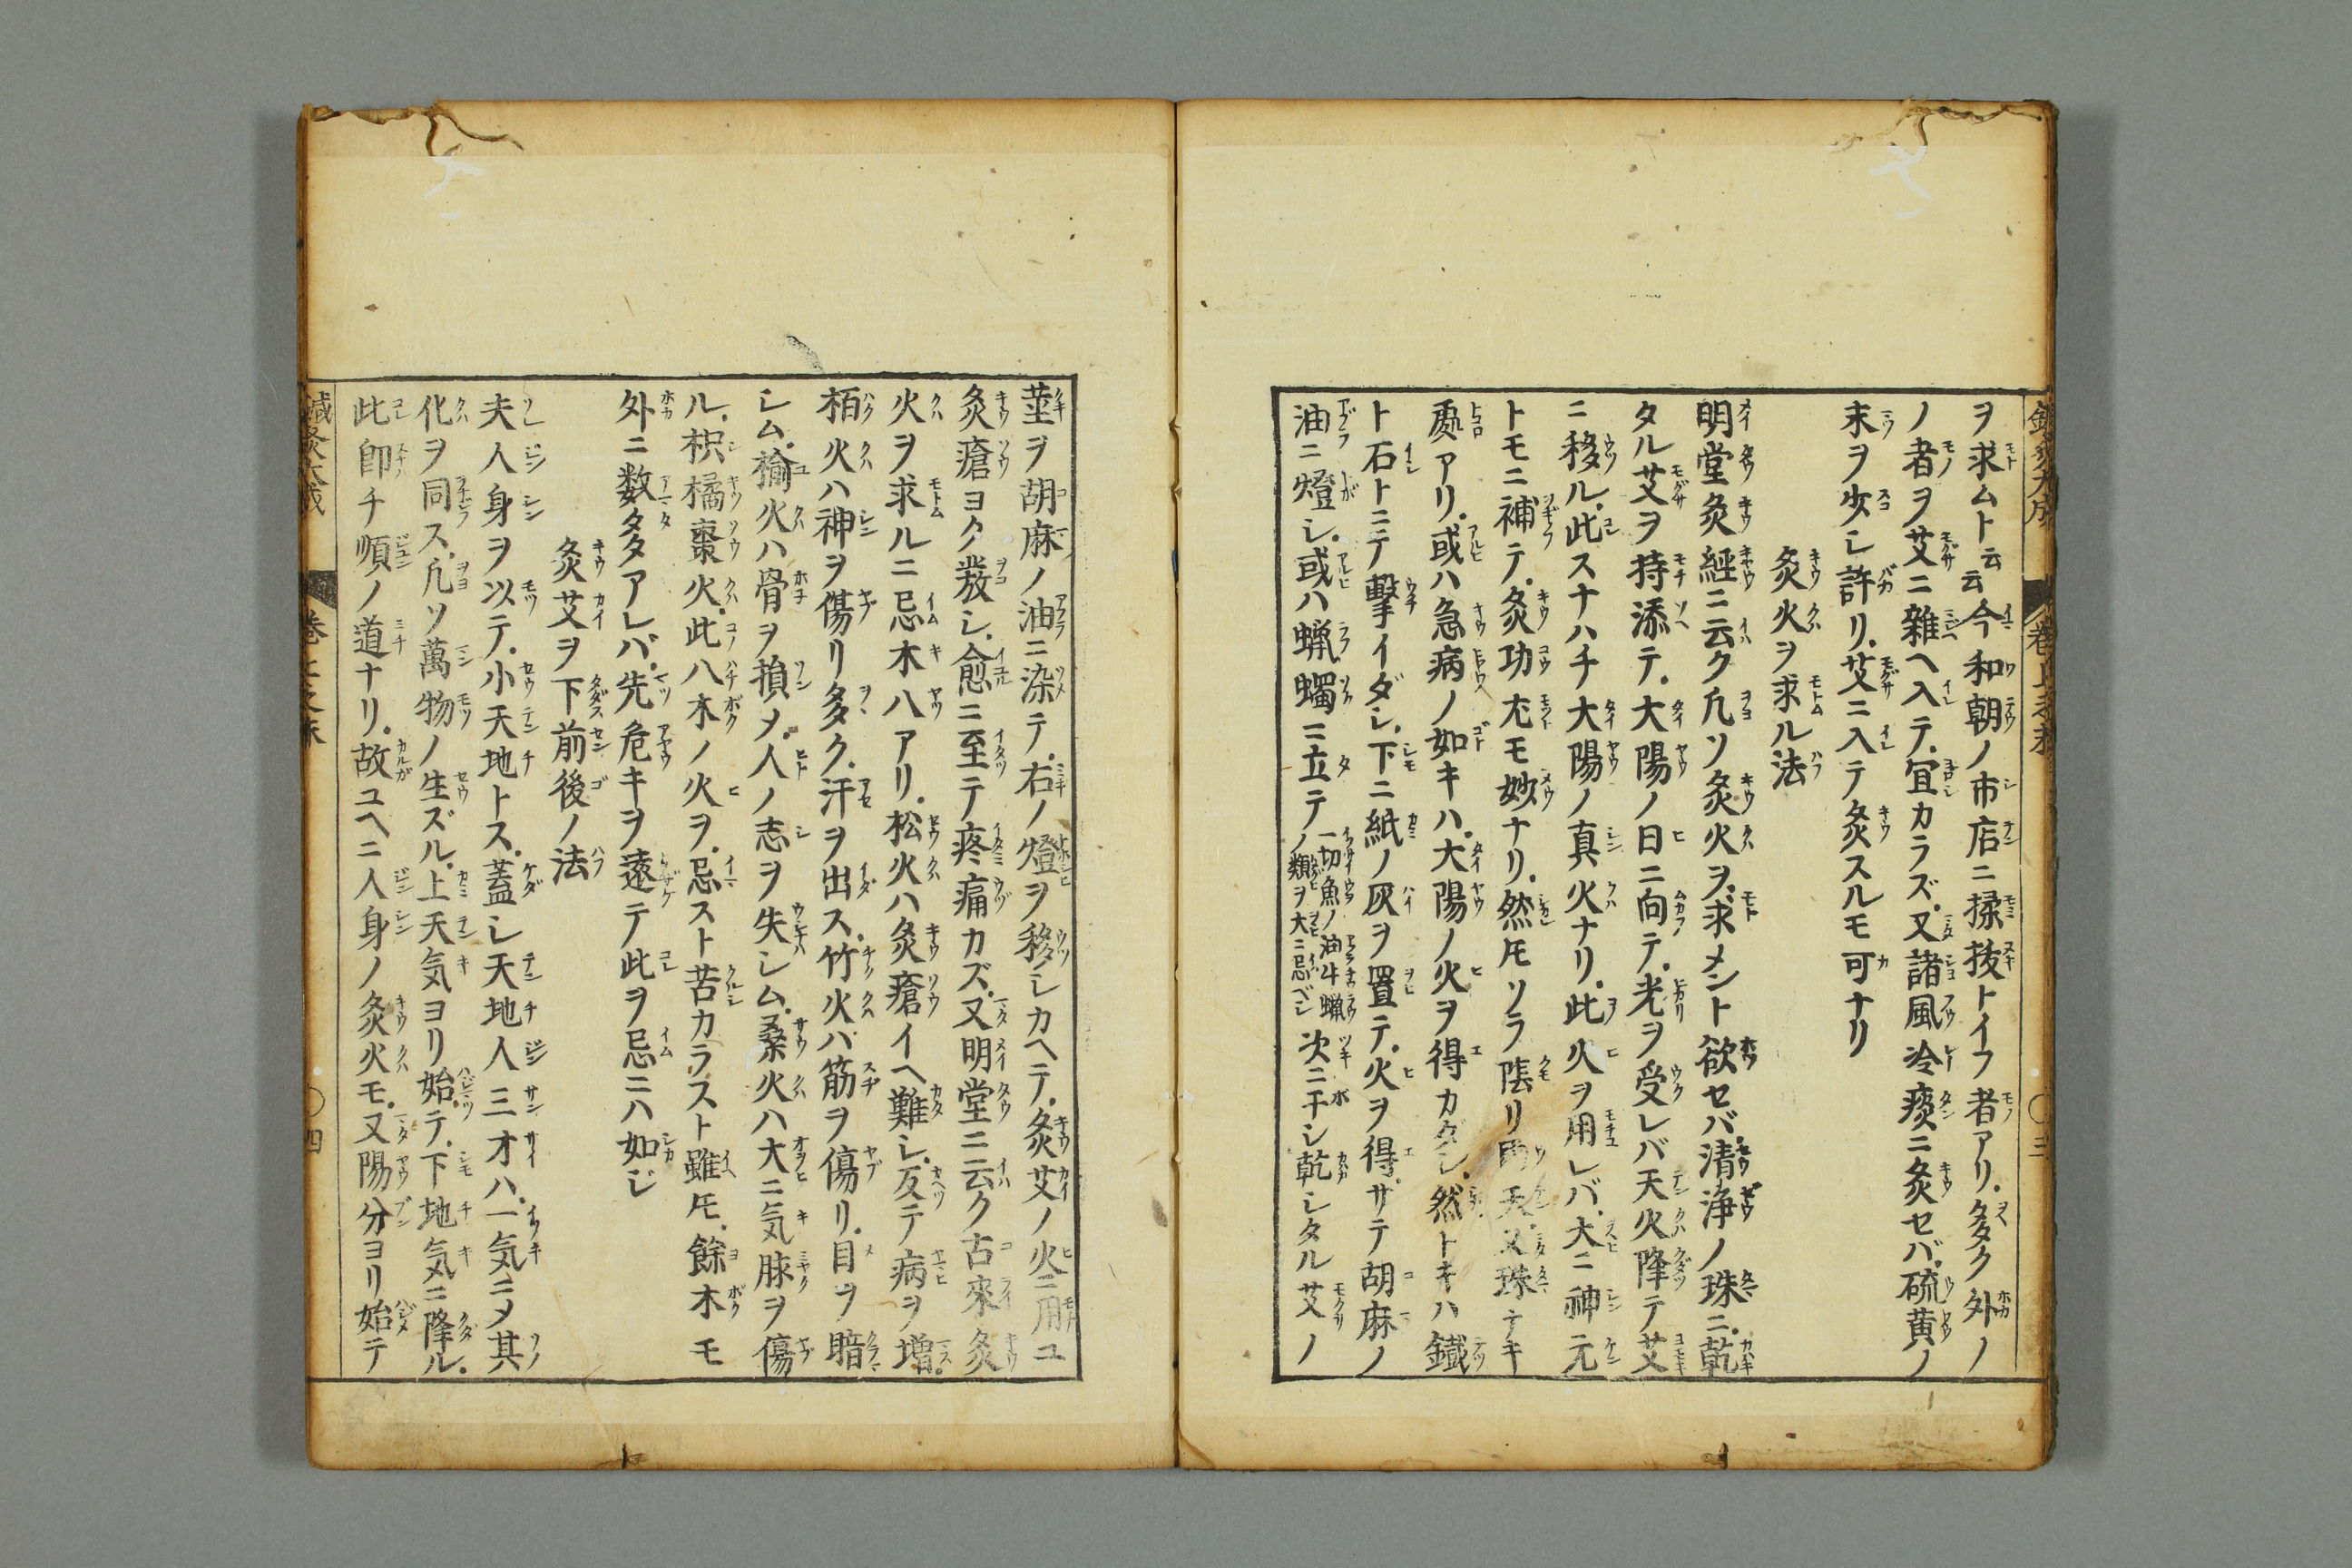 ヲ求ムト云云今和朝ノ市店ニ揉抜トイフ者アリ多ク外ノ
ノ者ヲ艾ニ雜ヘ入テ宜カラズ又諸風冷痰ニ灸セバ硫黄ノ
末ヲ少シ許リ艾ニ入テ灸スルモ可ナリ
灸火ヲ求ル法
明堂灸經ニ云ク凡ソ灸火ヲ求メント欲セバ清浄ノ珠ニ乾
タル艾ヲ持添テ大陽ノ日ニ向テ光ヲ受レバ天火降テ艾
ニ移ル此スナハチ大陽ノ真火ナリ此火ヲ用レバ大ニ神元
トモニ補テ灸功尤モ妙ナリ然𪜈ソラ隂リ雨天又珠ナキ
處アリ或ハ急病ノ如キハ大陽ノ火ヲ得カタシ然トキハ鐵
ト石トニテ擊イダシ下ニ紙ノ灰ヲ置テ火ヲ得サテ胡麻ノ
油ニ燈シ或ハ蝋蠋ニ立テ一切魚ノ油牛蝋ノ類ヲ大ニ忌ベシ次ニ干シ乾シタル艾ノ
莖ヲ胡麻ノ油ニ染テ右ノ燈ヲ移シカヘテ灸艾ノ火ニ用ユ
灸瘡ヨク發シ愈ニ至テ疼痛カズ又明堂ニ云ク古來灸
火ヲ求ルニ忌木八アリ松火ハ灸瘡イヘ難シ反テ病ヲ増
栢火ハ神ヲ傷リ多ク汗ヲ出ス竹火ハ筋ヲ傷リ目ヲ暗
シム楡火ハ骨ヲ損メ人ノ志ヲ失シム桑火ハ大ニ気脉ヲ傷
ル枳橘棗火此八木ノ火ヲ忌スト苦カラスト雖𪜈餘木モ
外ニ数多アレバ先危キヲ遠テ此ヲ忌ニハ如ジ
灸艾ヲ下前後ノ法
夫人身ヲ以テ小天地トス蓋シ天地人三才ハ一気ニメ其
化ヲ同ス凡ソ萬物ノ生ズル上天気ヨリ始テ下地気ニ降ル
此即チ順ノ道ナリ故ユヘニ人身ノ灸火モ又陽分ヨリ始テ
鍼灸大成
四